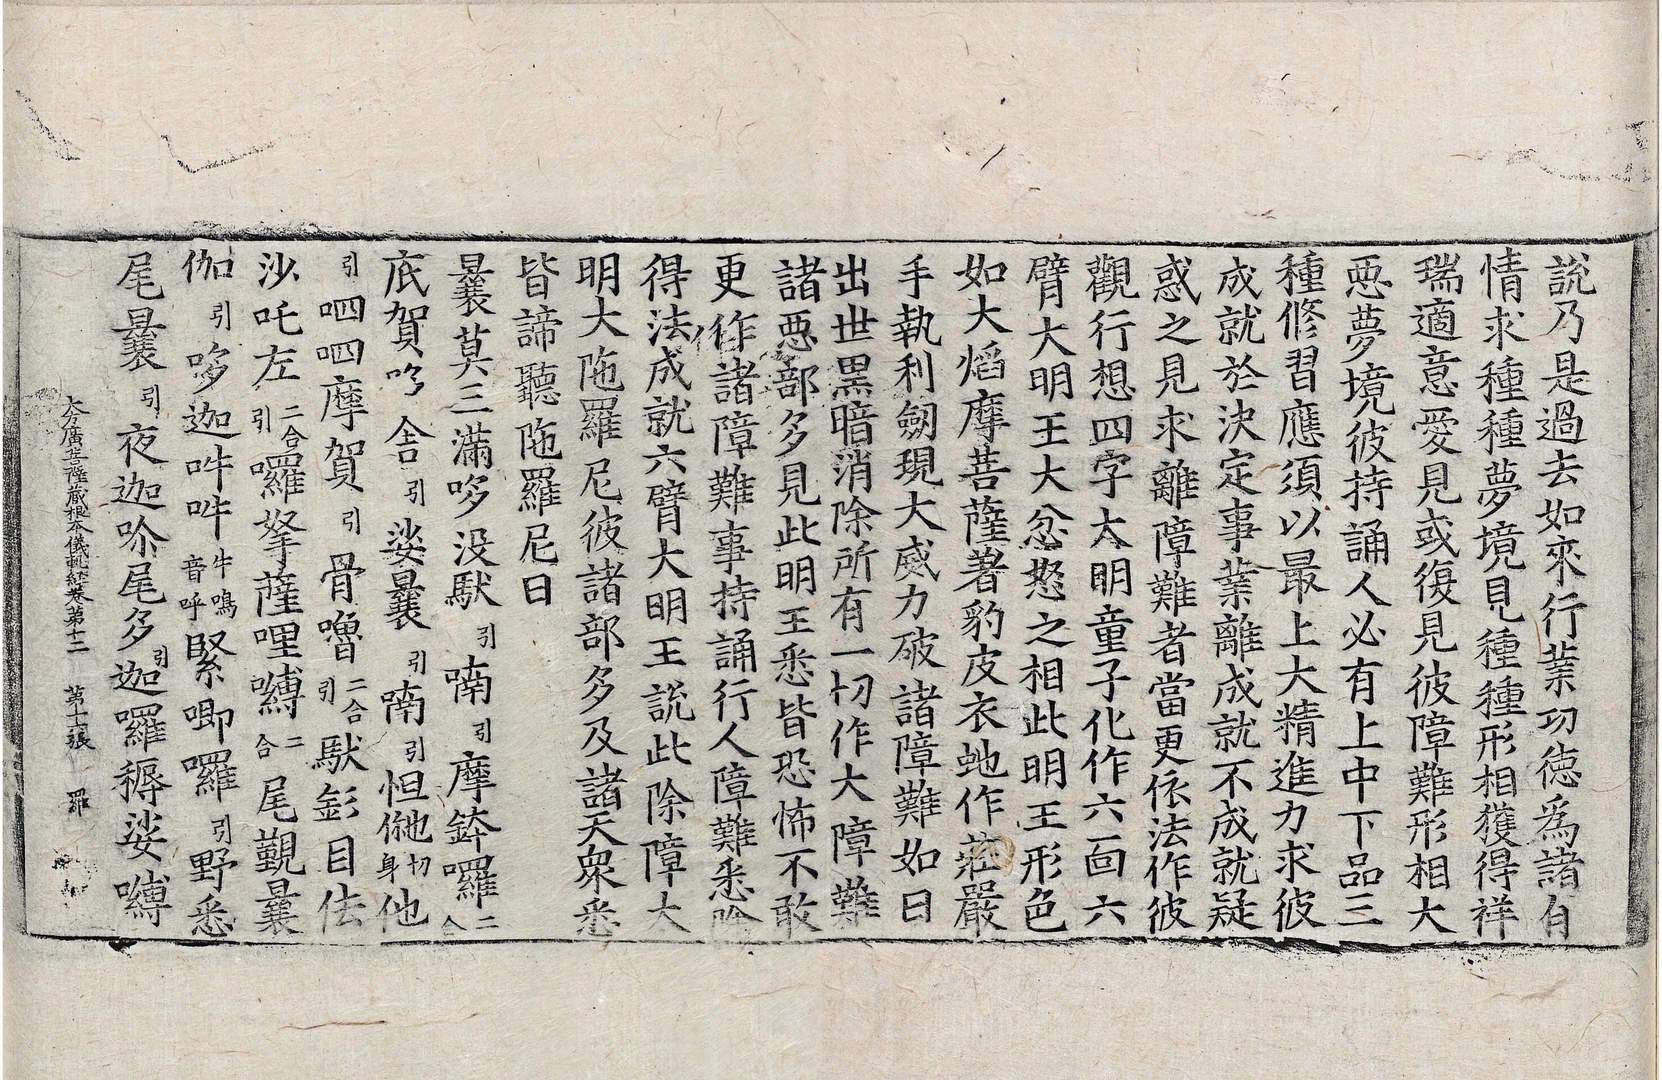 說乃是過去如來行業功德爲諸自
情求種種夢境見種種形相獲得祥
瑞適意愛見或復見彼障難形相大
惡夢境彼持誦人必有上中下品三
種修習應須以最上大精進力求彼
成就於決定事業離成就不成就疑
惑之見求離障難者當更依法作彼
觀行想四字大明童子化作六面六
臂大明王大忿怒之相此明王形色
如大熖摩菩薩著豹皮衣虵作莊嚴
手執利劒現大威力破諸障難如日
出世黑暗消除所有一切作大障難
諸惡部多見此明王悉皆恐怖不敢
更作諸障難事持誦行人障難悉除
得法成就六臂大明王說此除障大
明大陁羅尼彼諸部多及諸天衆悉
皆諦聽陁羅尼曰
曩莫三滿哆没馱引喃引摩鉢囉二合
底賀吟舍引娑曩引喃引怛儞也切身他
引呬呬摩賀引骨嚕二合引馱髟目佉
沙吒左二合引囉拏薩哩嚩二合尾覲曩
伽引哆迦吽吽牛鳴音呼緊唧囉引野悉
尾曩引夜迦吤尾多引迦囉耨娑嚩
大方廣菩薩藏根本儀軌經卷第十二　第十六張　羅